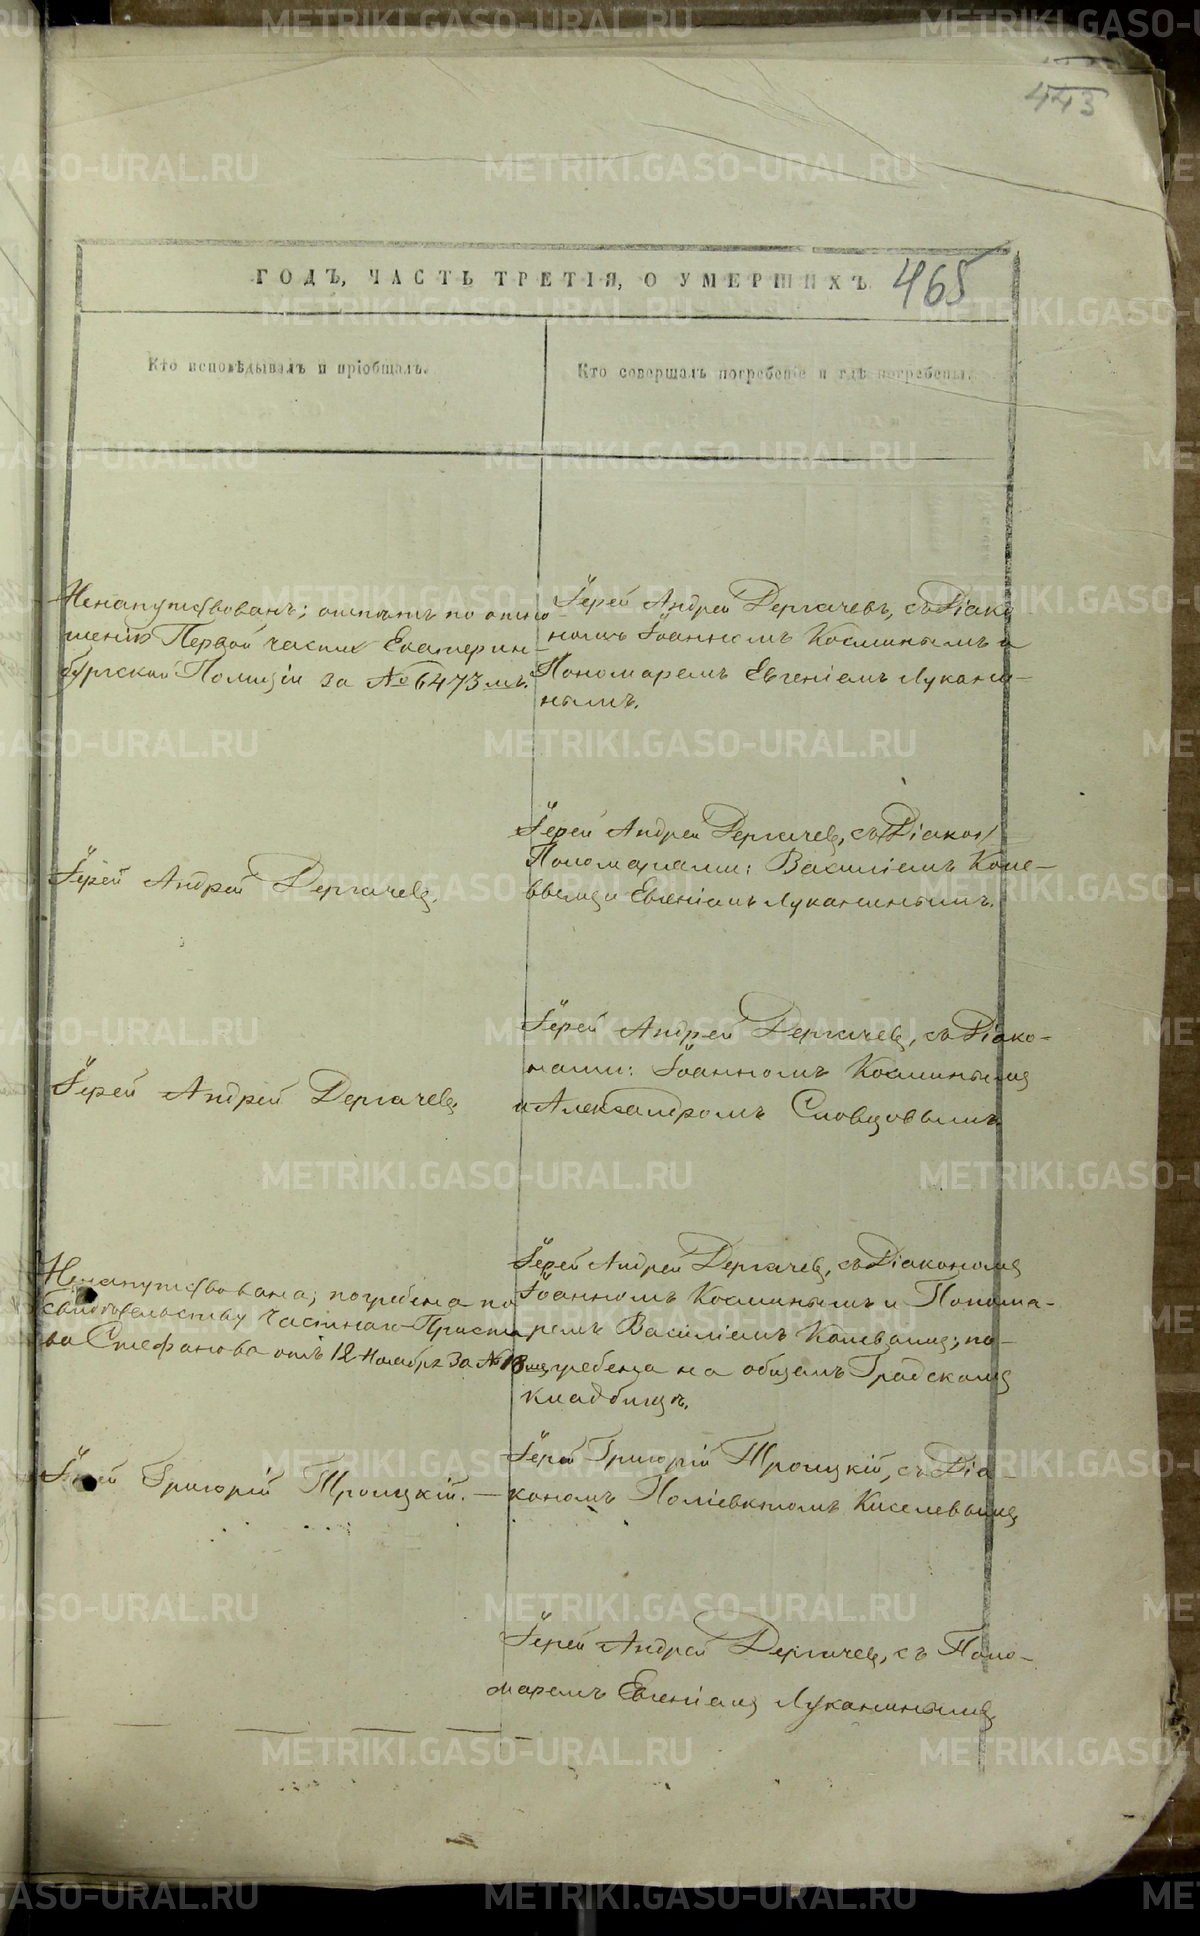 443
ГОДЪ, ЧАСТЬ ТРЕТІЯ, О УМЕРШИХЪ. 465
Кто исповѣдывалъ и пріобщалъ.
Кто совершалъ погребеніе и гдѣ погребены.
Ненапутствованъ; отпѣтъ по отно
шенію Первой части Екатерин-
бургской Полиціи за № 6473мъ.
Іерей Андрей Дергачевъ, съ Діако
номъ Іоанномъ Косминымъ и
Пономаремъ Евгеніемъ Лукани-
нымъ.
Іерей Андрей Дергачевъ.
Іерей Андрей Дергачевъ, съ
Пономарями: Василіемъ Коче-
вымъ и Евгеніемъ Луканинымъ.
Іерей Андрей Дергачевъ
Іерей Андрей Дергачевъ, съ Діако-
нами: Іоанномъ Косминымъ
и Александромъ Словцовымъ
Ненапутствована; погребена по
свидѣтельству Частнаго Приста
ва Стефанова отъ 12 Ноября за №
Іерей Андрей Дергачевъ, съ Діакономъ
Іоанномъ Косминымъ и Понома-
ремъ Василіемъ; по-
гребена на общемъ Градскомъ
кладбищѣ.
Іерей Григорій Троицкій. —
Іерей Григорій Троицкій, съ Діа-
кономъ Поліевктомъ Киселевымъ
Іерей Андрей Дергачевъ, съ Поно-
маремъ Евгеніемъ Луканинымъ
METRIKI.GASO-URAL.RU